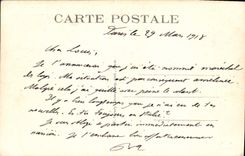 CARTE POSTALE
Paris le 29 Mars 1918
Cher Louis,
Je t'annonce que j'ai été nommé maréchal
des logis. Ma situation est par conséquent améliorée
Malgré cela j'ai quitté avec peine le
Il y a longtemps que je n'ai eu de tes
nouvelles. Es tu toujours en
Je
Je t'embrasse bien affectueusement